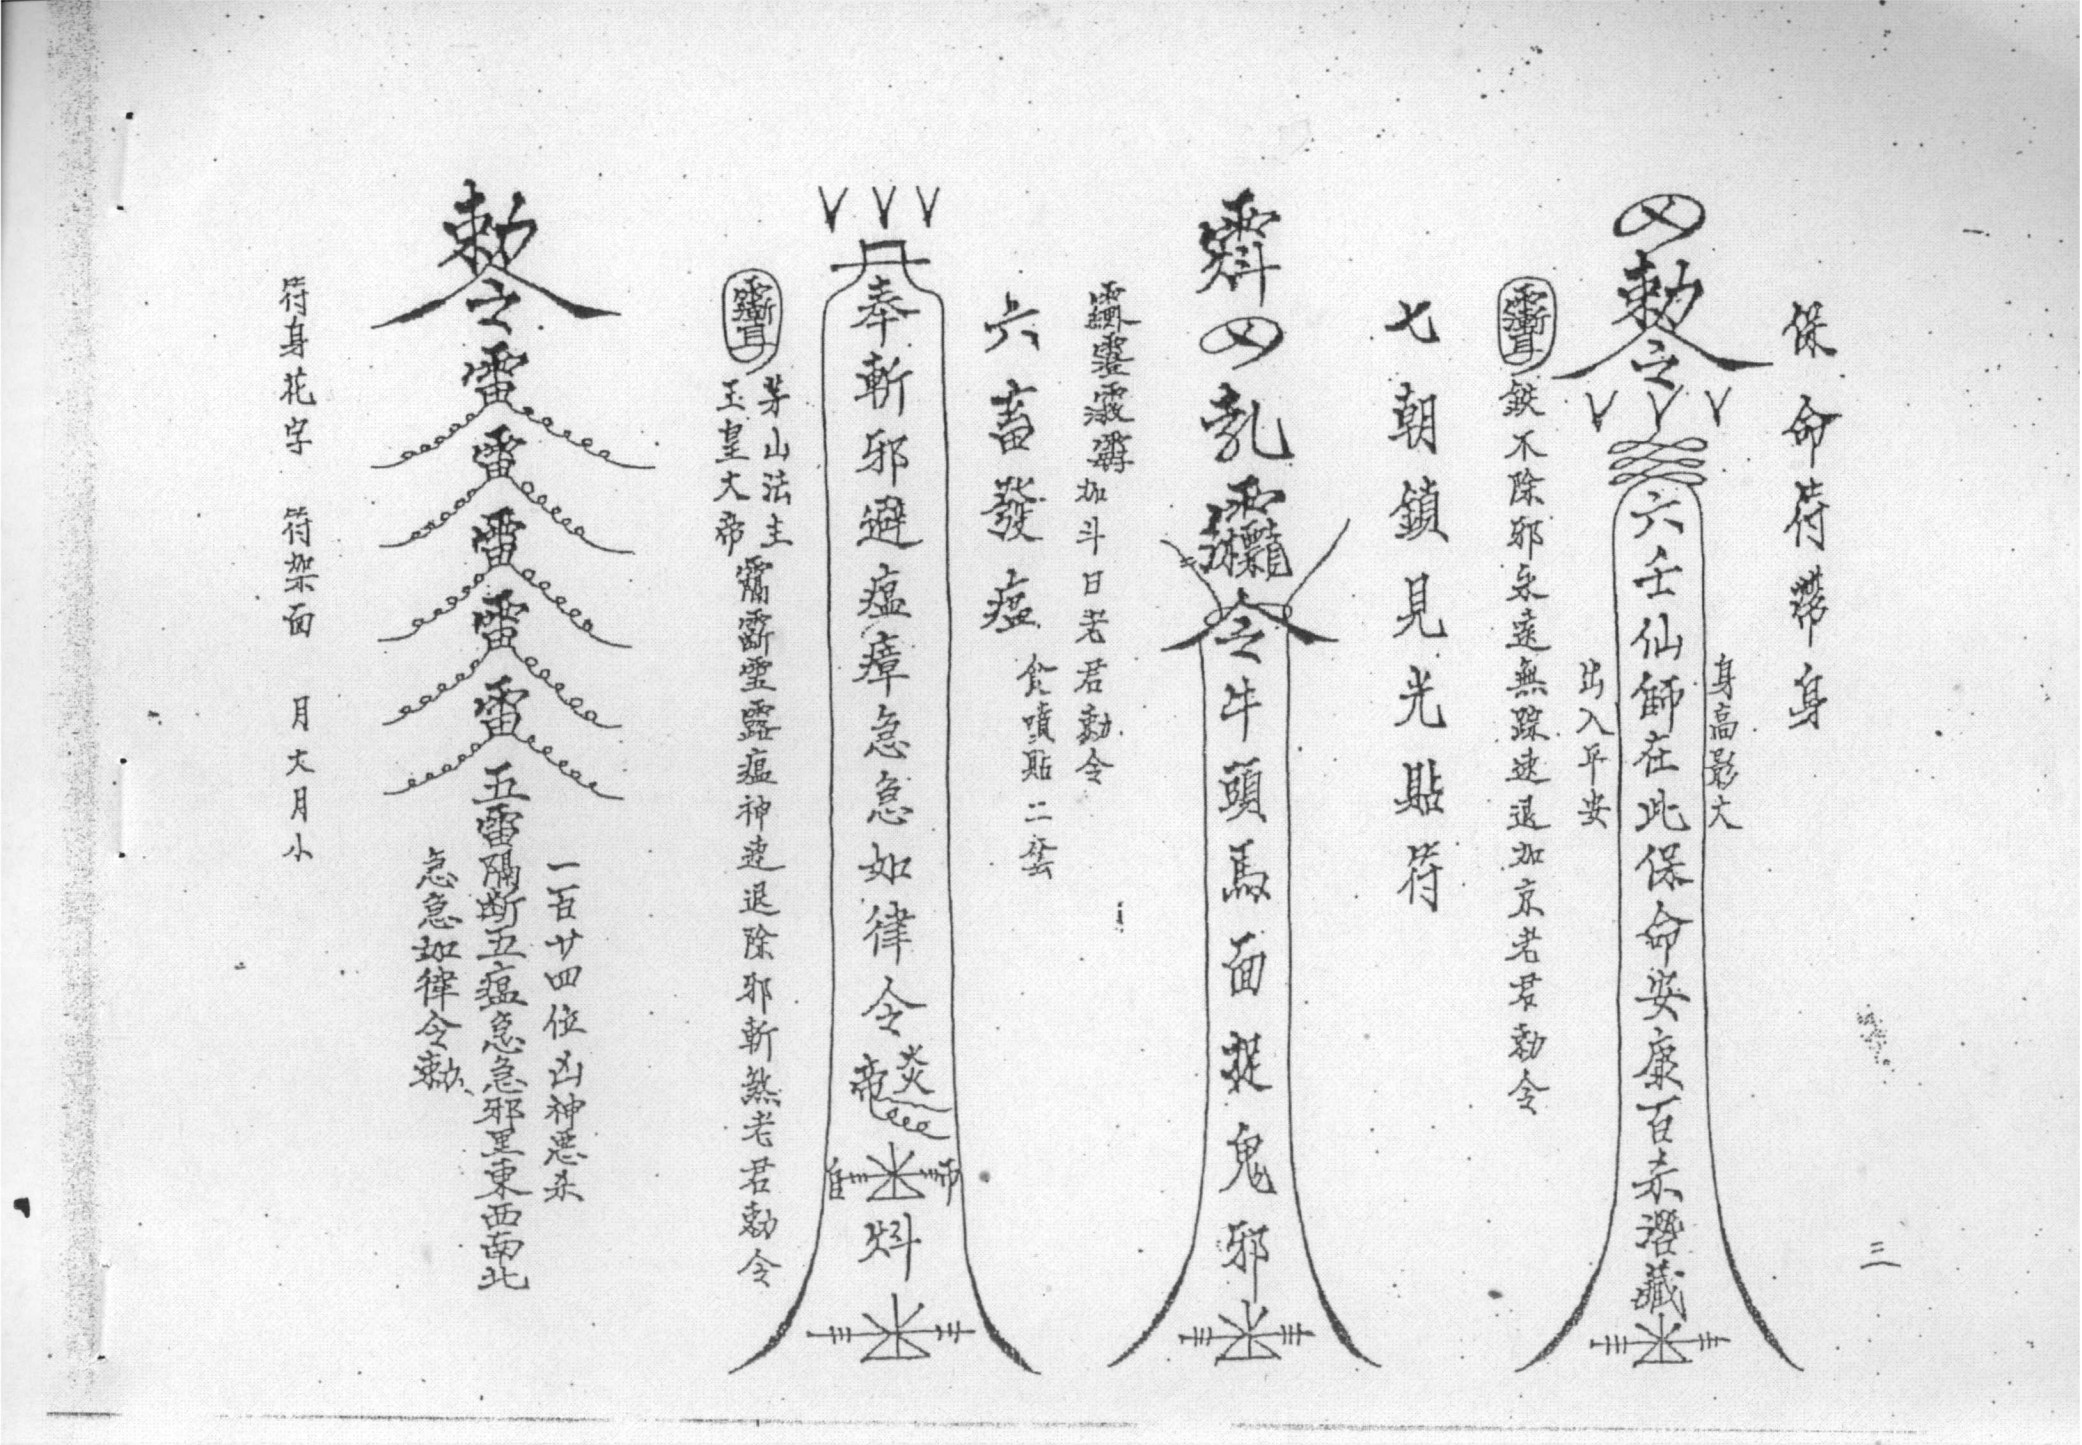 保命符帶身
敕令
六壬仙師在此保命安康百杀潛藏
身高影大
出入平安
鉄不除邪永遠無踪速退加京老君勅令
七朝鎖見光貼符
令牛頭馬面捉鬼邪
加斗日老君勅令
六畜發瘟
食噴貼二套
奉斬邪避瘟瘴急急如律令
茅山法主
玉皇大帝
瘟神速退除邪斬煞老君勅令
敕令雷雷雷雷雷
五雷隔断五瘟急急邪里東西南北
一百廿四位凶神惡杀
急急如律令勅
符身花字 符架面 月大月小
三